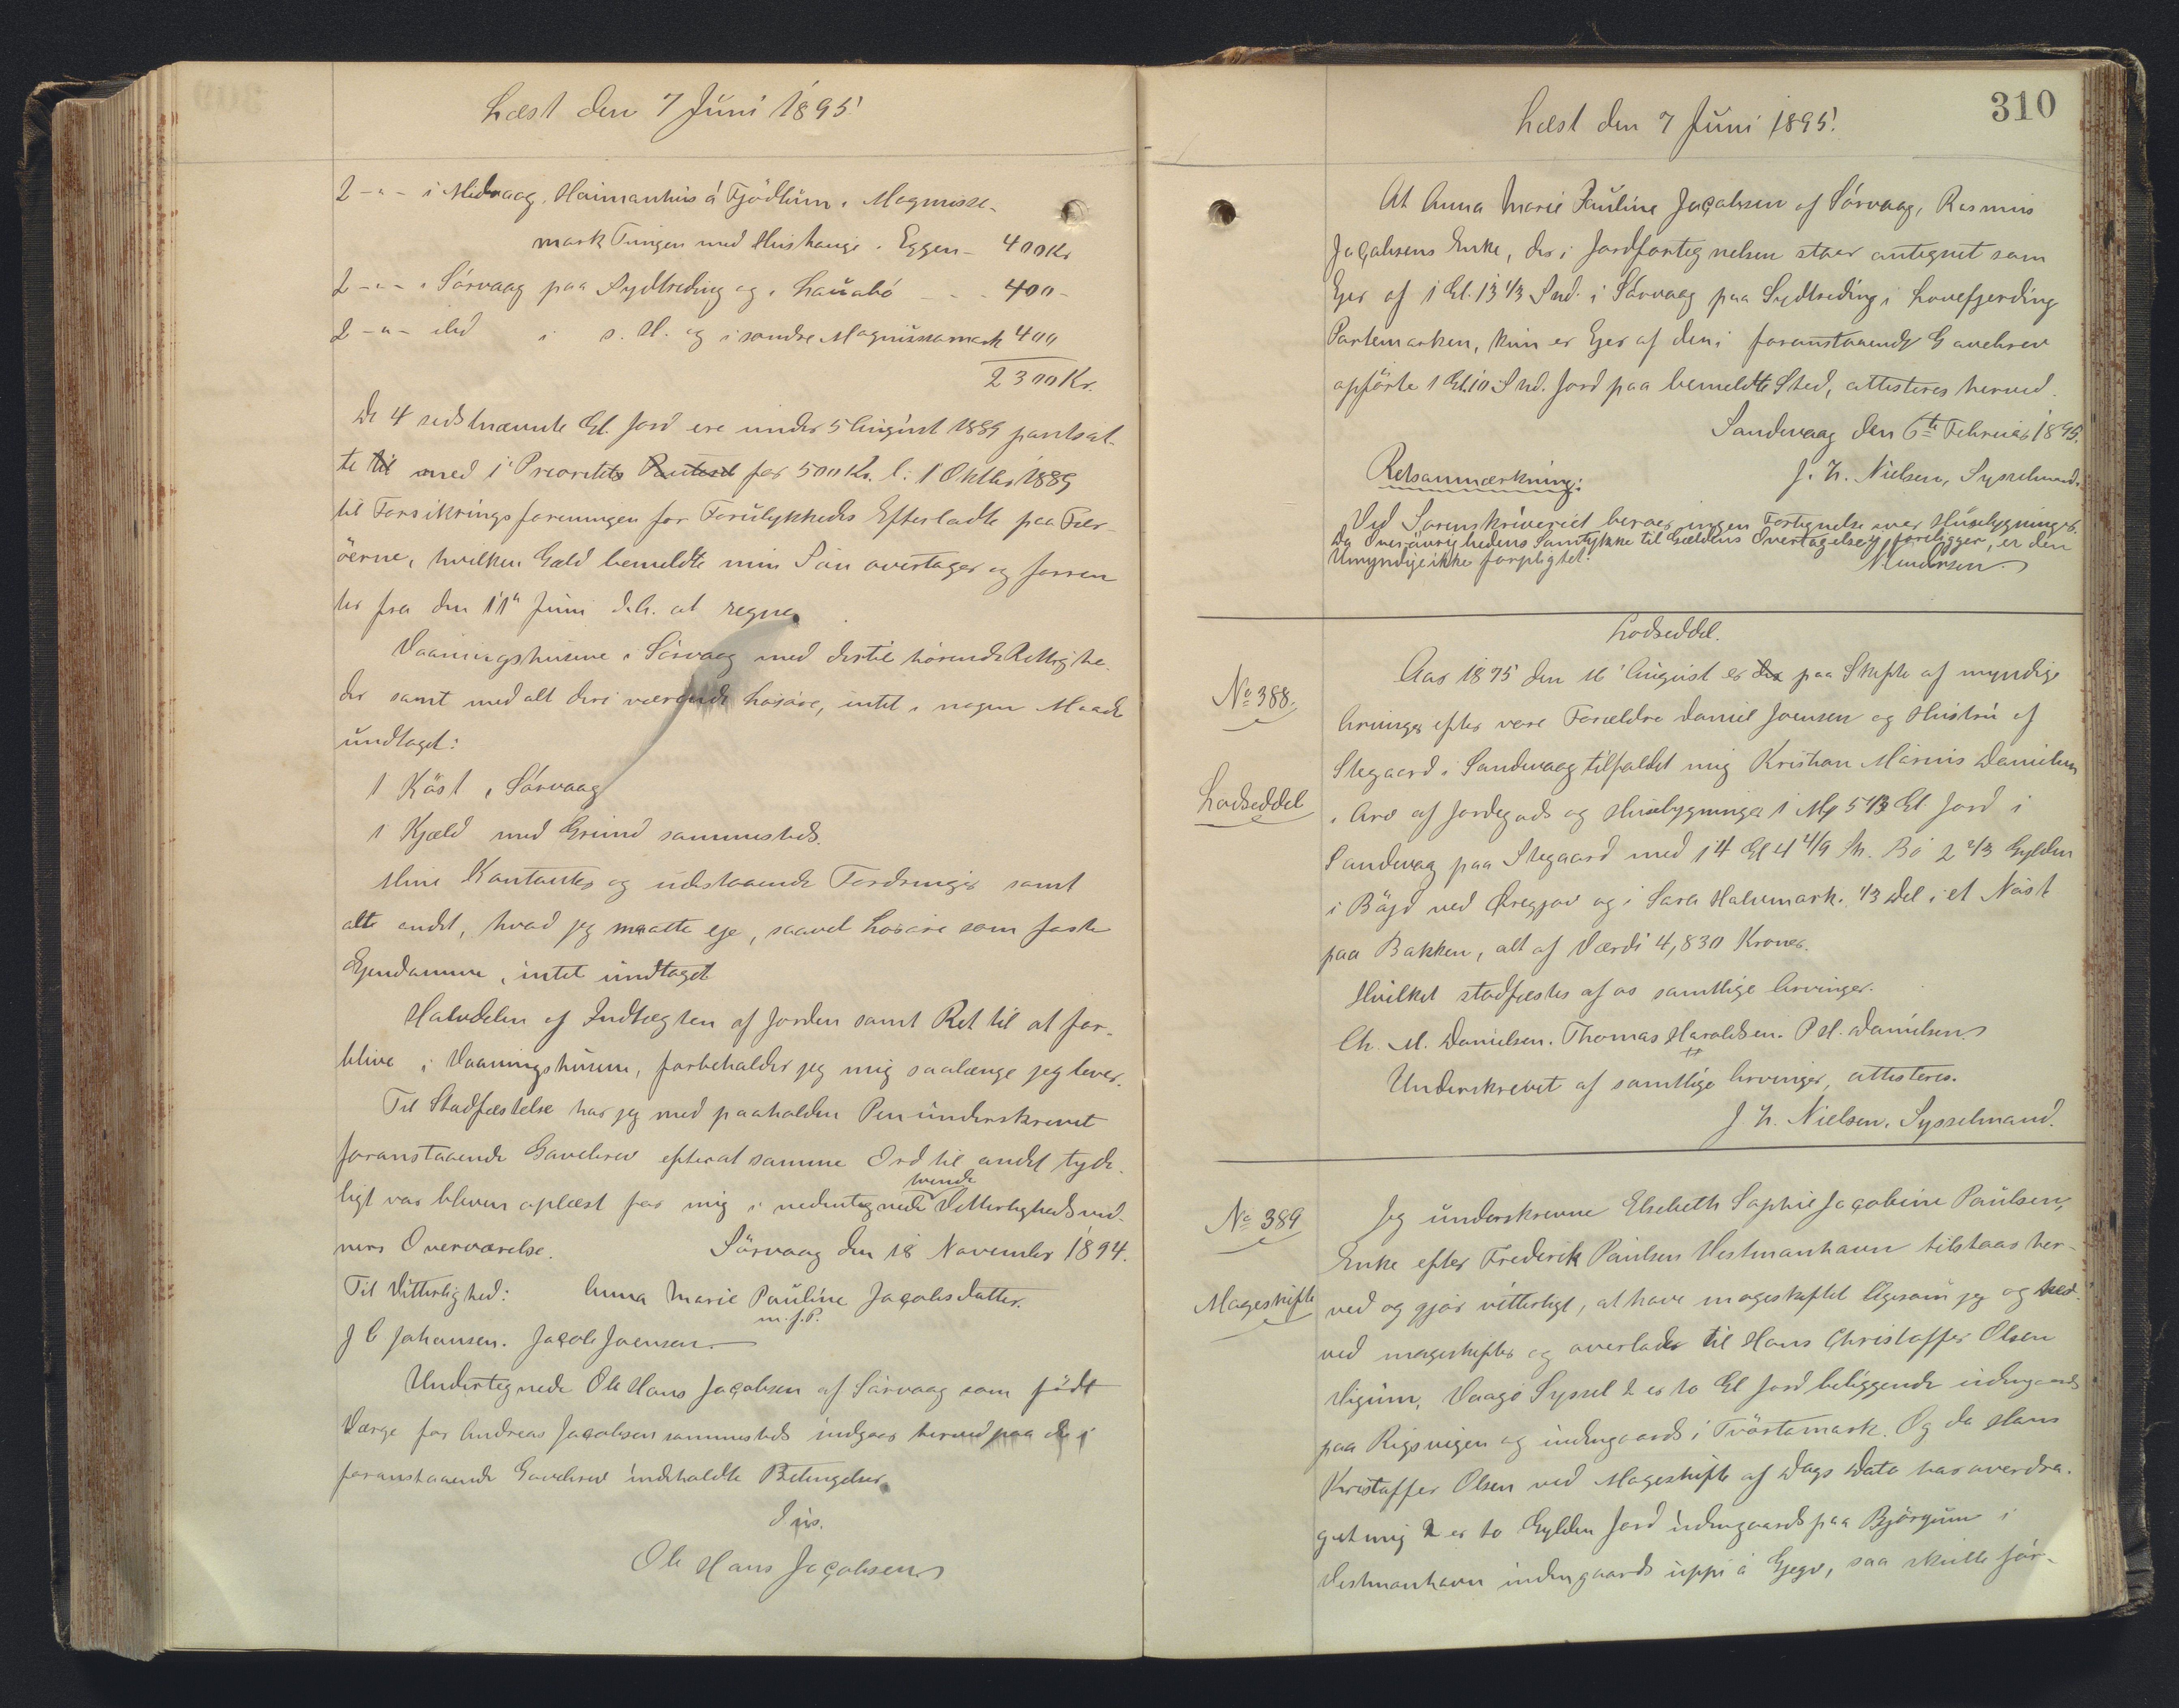 Læst den 7 Juni 1895
2 -"- i Midvaag. Haimanhús á Fjödlum i Magnusse-
mark Tungen med Hushauge i Eggen - 400 Kr
2 -"- i Sörvaag paa Sydtreding og i Lauabö - - 400 -
2 -"- ibd i s. St. og i søndre Magnussamark 400
2300 Kr.
De 4 sidstnævnte Gl. Jord ere under 5 August 1889 pantsat-
te til med 1' Prioritets Panteret for 500 Kr. l: 1 Oktbr 1889
til Forsikringsforeningen for Forulykkedes Efterladte paa Fær-
öerne, hvilken Gæld bemeldte min Sön overtager og forren
ter fra den 11" Juni d.A. at regne
Vaaningshusene i Sörvaag med dertil hörende Rettighe-
der samt med alt deri værende Lösöre, intet i nogen Maade
undtaget:
1 Käst i Sörvaag
1 Kjæld med Grund sammesteds.
Mine Kontanter og udestaaende Fordringer samt
alt andet, hvad jeg maatte eje, saavel Lösöre som faste
Ejendomme, intet undtaget
Halvdelen af Indtægten af Jorden samt Ret til at for-
blive i Vaaningshusene, forbeholder jeg mig saalænge jeg lever.
Til Stadfæstelse har jeg med paaholden Pen underskrevet
foranstaaende Gavebrev efterat samme Ord til andet tyde-
ligt var bleven oplæst for mig i nedentegnede tvende Vitterlighedsvid-
ners Overværelse. Sörvaag den 18 November 1894.
Til Vitterlighed: Anna Marie Pauline Jacobsdatter.
m.f.P.
J C Johansen. Jacob Joensen.
Undertegnede Ole Hans Jacobsen af Sörvaag som födt
Værge for Andreas Jacobsen sammesteds indgaar herved paa de i
foranstaaende Gavebrev indholdte Betingelser
d. us.
Ole Hans Jacobsen
310
Læst den 7 Juni 1895.
At Anna Marie Pauline Jacobsen af Sörvaag, Rasmus
Jacobsens Enke, der i Jordfortegnelsen staar antegnet som
Ejer af 1 Gl. 13 1/3 Snd. i Sörvaag paa Sydtreding i Lonefjerding
Partemarken, kun er Ejer af den i foranstaaende Gavebrev
opförte 1 Gl. 10 Snd. Jord paa bemeldte Sted, attesteres herved.
Sandevaag den 6te Februar 1895.
J. H. Nielsen, Sysselmand.
Retsanmærkning:
Ved Sorenskriveriet beroer ingen Fortegnelse over Husebygninger.
Da Overövrighedens Samtykke til Gældens Overtagelse ej foreligger, er den
Umyndige ikke forpligtet.
Lodseddel.
No 388.
Lodseddel
Aar 1875 den 16' August er der paa Skifte af myndige
Arvinger efter vore Forældre Daniel Joensen og Hustru af
Stegaard i Sandevaag tilfaldet mig Kristian Marius Danielsen
i Arv af Jordegods og Husebygninger 1 Mk 5 1/3 Gl Jord i
Sandevaag paa Stegaard med 14 Gl 4 4/9 Sk. Bö 2 2/3 Gylden
i Böjd ved Öregjov og i Sara Halvmark. 1/3 Del i et Nöst
paa Bakken, alt af Værdi 4,830 Kroner.
Hvilket stadfæstes af os samtlige Arvinger.
Ch. M. Danielsen. Thomas Haraldsen. P. H. Danielsen
Underskrevet af samtlige Arvinger, attesteres.
J H. Nielsen. Sysselmand.
No 389
Mageskifte
Jeg underskrevne Elsebeth Sophie Jacobine Paulsen,
Enke efter Frederik Paulsen Vestmanhavn tilstaar her-
ved og gjör vitterligt, at have mageskiftet ligesom jeg og her-
ved mageskifter og overlader til Hans Christoffer Olsen
Vigum, Vaagö Syssel 2 er to Gl Jord beliggende indengaards
paa Rigsvigen og indengaards i Tvörtamark. Og da Hans
Kristoffer Olsen ved Mageskifte af Dags Dato har overdra-
get mig 2 er to Gylden Jord udengaards paa Björgum i
Vestmanhavn indengaards uppi á Gjegv, saa skulle för-